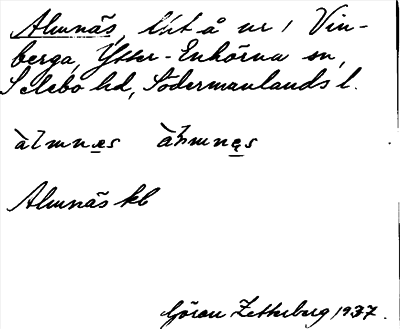 Almnäs, lht å nr 1 Vin-
berga, Ytter-Enhörna sn,
Selebo hd, Södermanlands l.
àlmnes àhmnes
Almnäs kb
Göran Zetterberg 1937.